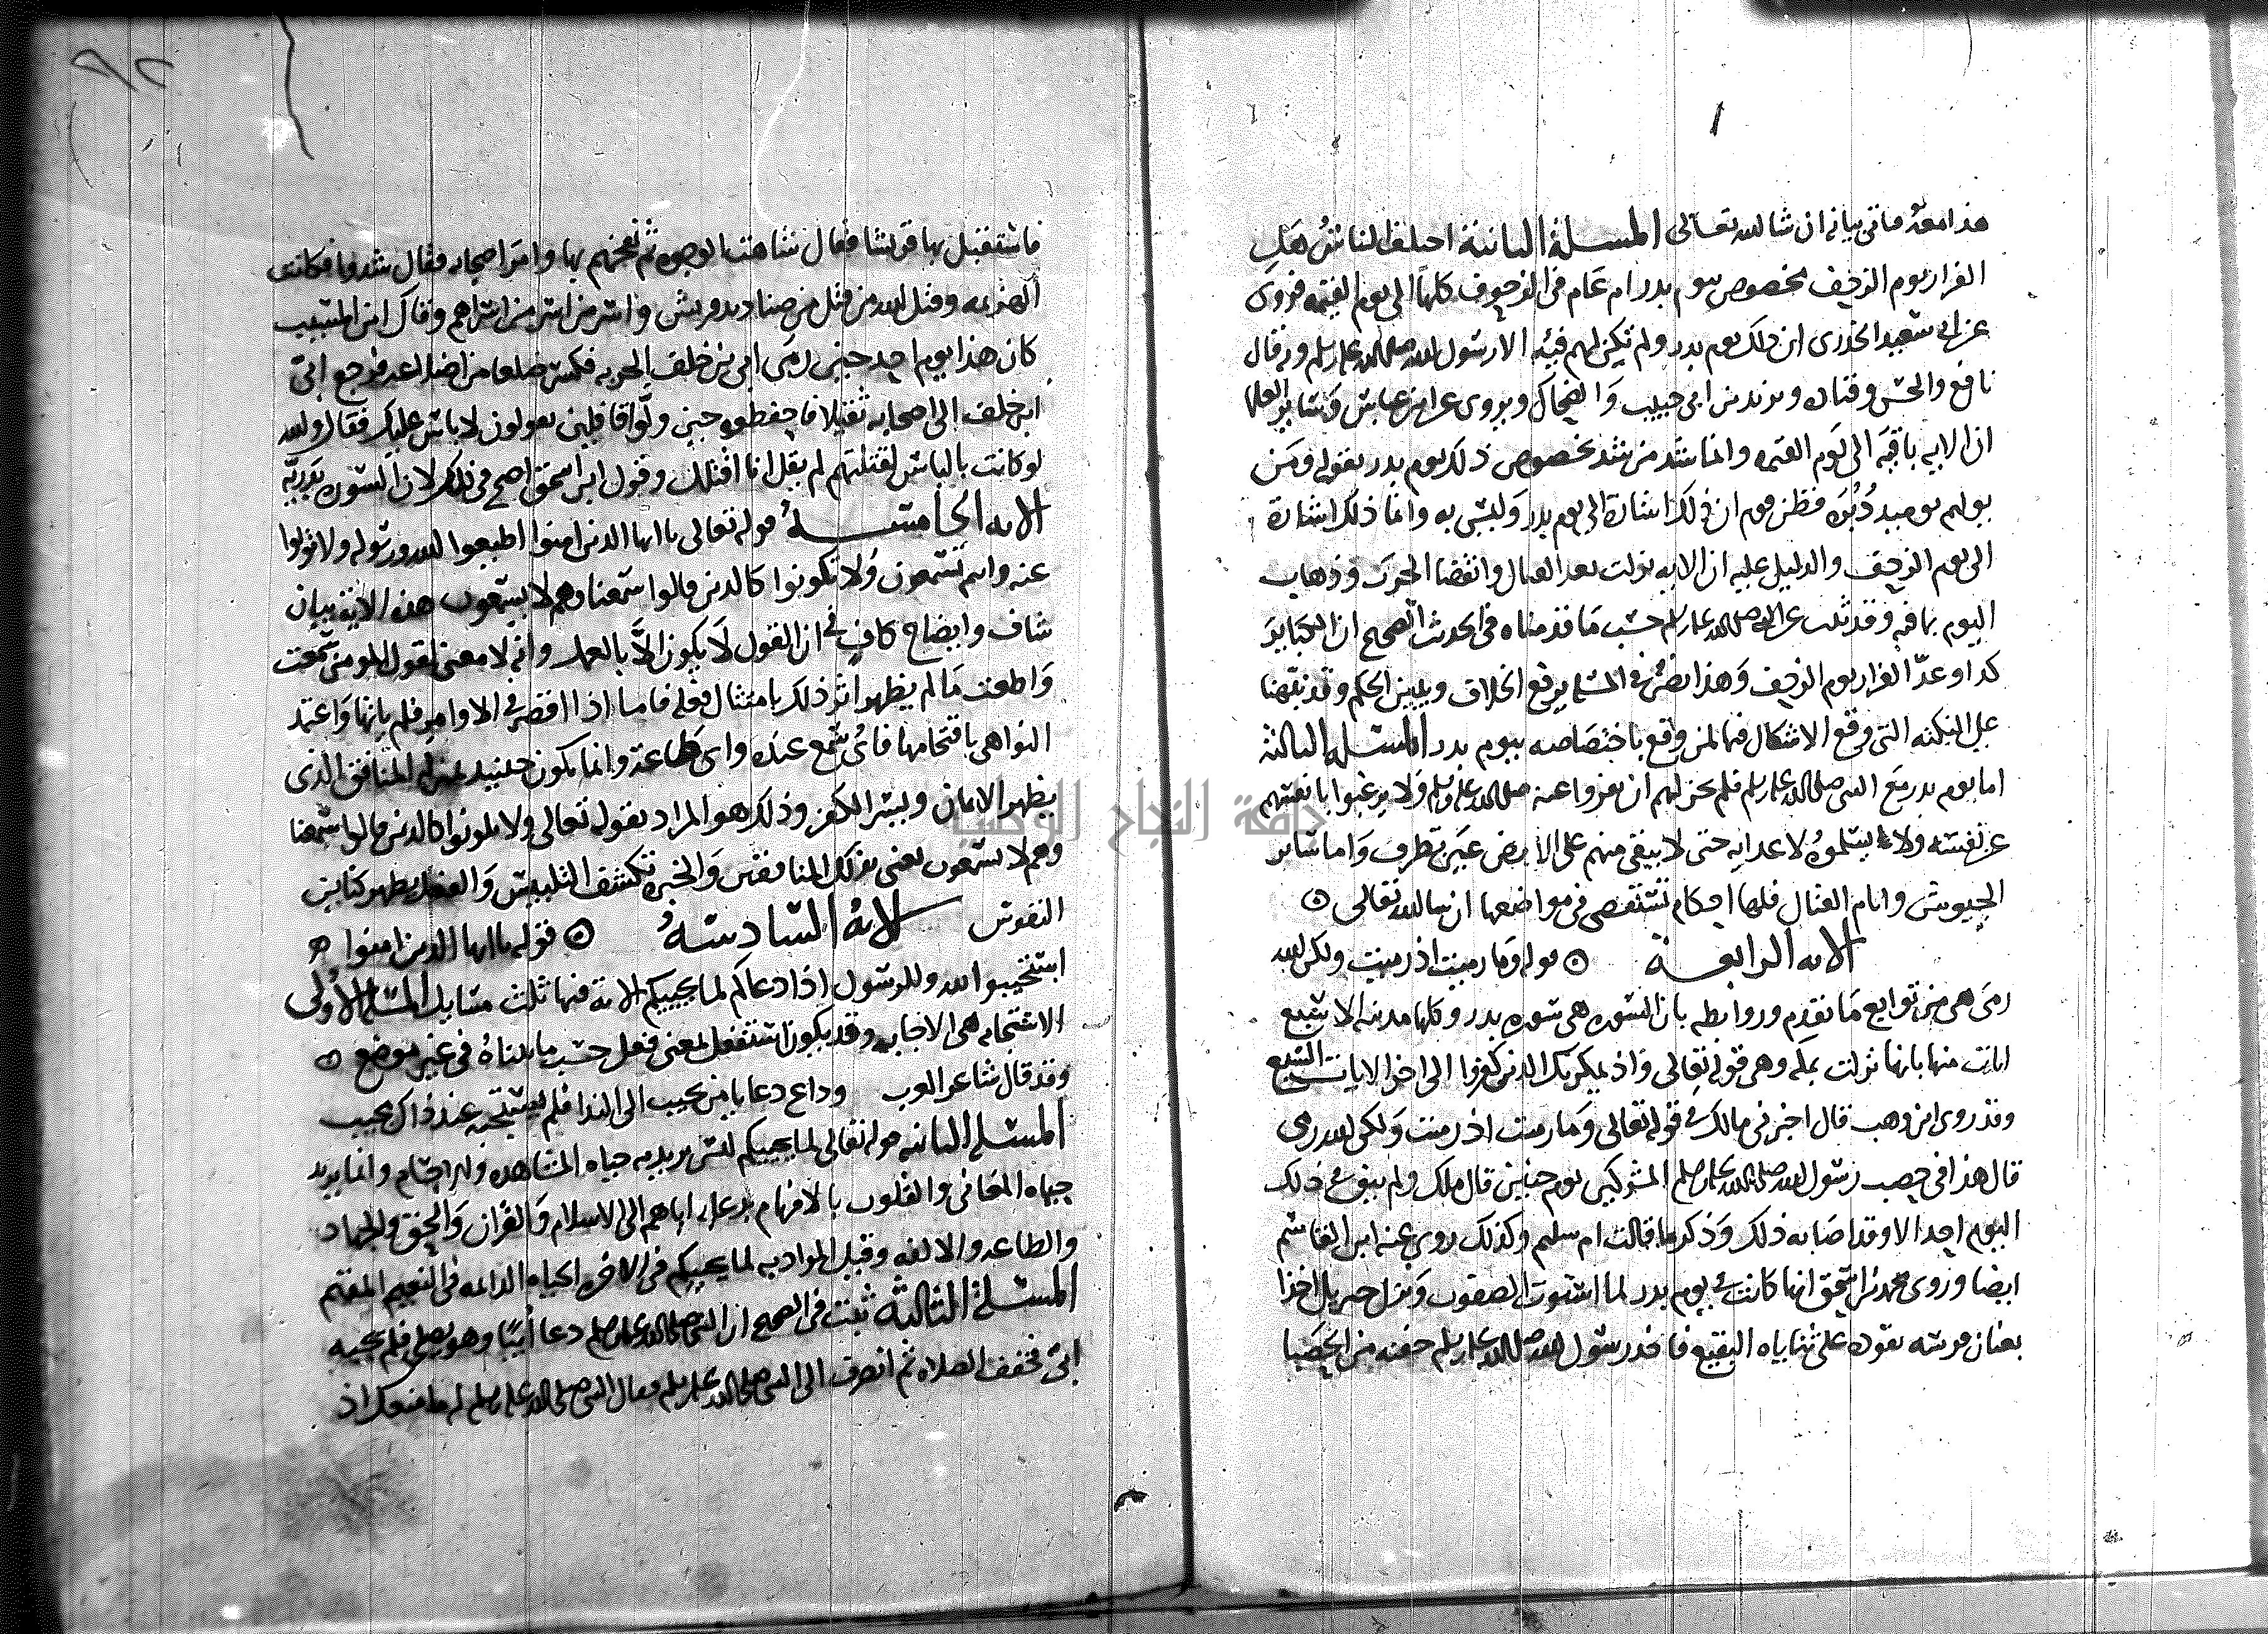 هذا معه فاتى بيانه ان شا الله تعالى المسلة الثانية اختلف الناس هل
الفرار يوم الزحف مخصوص بيوم بدر ام عام في الزحوف كلها الى يوم القيمه فروى
عن ابي سعيد الخدرى ان ذلك يوم بدر ولم تكن لهم فيه الا رسول الله صلى الله عليه وسلم وبه قال
نافع والحسن وقتاده ويزيد بن ابي حبيب والضحاك ويروى عن ابن عباس وساير العلما
ان الايه باقيه الى يوم القيمه وانما شذ من شذ بخصوص ذلك يوم بدر بقوله ومن
يولهم يوميذ دبره فظن قوم ان ذلك اشارة الى يوم بدر وليس به وانما ذلك اشارة
الى يوم الزحف والدليل عليه ان الايه نزلت بعد القتال وانقضا الحرب وذهاب
اليوم بما فيه وقد ثبت عن النبي صلى الله عليه وسلم حسب ما قدمناه في الحديث الصحيح ان الكباير
كذا وعدّ الفرار يوم الزحف وهذا نص في المسلة يرفع الخلاف ويبين الحكم وقد نبهنا
على النكته التى وقع الاشكال فيها لمن وقع باختصاصه بيوم بدر المسلة الثالثة
اما يوم بدر مع النبي صلى الله عليه وسلم فلم يجز لهم ان يفروا عنه صلى الله عليه وسلم ولا يرغبوا بانفسهم
عن نفسه ولا يسلموه لاعدايه حتى لا يبقى منهم على الارض عين تطرف واما ساير
الجيوش وايام القتال فلها احكام تستقصى في مواضعها ان شا الله تعالى
الايه الرابعة قوله وما رميت اذ رميت ولكن الله
رمى هي من توابع ما تقدم وروابطه بان السوره هي سوره بدر وكلها مدنيه الا سبع
ايات منها بانها نزلت بمكه وهي قوله تعالى واذ يمكر بك الذين كفروا الى اخر الايات السبع
وقد روى ابن وهب قال اخبرني مالك في قوله تعالى وما رميت اذ رميت ولكن الله رمى
قال هذا في حصب رسول الله صلى الله عليه وسلم المشركين يوم حنين قال ملك ولم يبق في ذلك
اليوم احد الا وقد اصابه ذلك وذكر ما قالت ام سليم وكذلك روى عنه ابن القاسم
ايضا وروى محمد بن اسحق انها كانت في يوم بدر لما استوت الصفوف ونزل جبريل اخذا
بعنان فرسه يقوده على ثناياه النقع فاخذ رسول الله صلى الله عليه وسلم حفنه من الحصبا
فاستقبل بها قريشا فقال شاهت الوجوه ثم نفحهم بها وامر اصحابه فقال شدوا فكانت
الهزيمه وقتل الله من قتل من صناديد قريش واسر من اسر من اسراهم وقال ابن المسيب
كان هذا يوم احد حين رمى ابي بن خلف بالحربه فكسر ضلعا من اضلاعه فرجع ابي
ابن خلف الى اصحابه ثقيلا فاحفظوه حين ولوا قافلين يقولون لا باس عليك فقال والله
لو كانت بالناس لقتلتهم لم يقل انا اقتلك وقول ابن اسحق اصح في ذلك لان السوره بدريه
الايه الخامسه قوله تعالى يا ايها الذين امنوا اطيعوا الله ورسوله ولا تولوا
عنه وانتم تسمعون ولا تكونوا كالذين قالوا سمعنا وهم لا يسمعون هذه الاية بيان
شاف وايضاح كاف في ان القول لا يكون الا بالعمل وانه لا معنى لقول المومن سمعت
واطعت ما لم يظهر اثر ذلك بامتثال فعله فاما اذا اقصر في الاوامر فلم ياتها واعتمد
النواهي باقتحامها فاي سمع عنده واى طاعة وانما يكون حينيذ بمنزله المنافق الذى
يظهر الايمان ويسر الكفر وذلك هو المراد بقوله تعالى ولا تكونوا كالذين قالوا سمعنا
وهم لا يسمعون يعنى بذلك المنافقين والخبره تكشف التلبيس والفعل يظهر كناين
النفوس الاية السادسة قوله يا ايها الذين امنوا
استجيبوا لله وللرسول اذا دعاكم لما يحييكم الاية فيها ثلث مسايل المسلة الاولى
الاستجابه هي الاجابه وقد يكون استفعل بمعنى فعل حسب ما بيناه في غير موضع
وقد قال شاعر العرب وداع دعا يا من يجيب الى الندا فلم يستجبه عند ذاك مجيب
المسلة الثانيه قوله تعالى لما يحييكم ليس يريد به حياه المشاهده والاجسام وانما يريد
حياه المعانى والقلوب بالافهام بدعايه اياهم الى الاسلام والقران والحق والجهاد
والطاعه والالفه وقيل المراد به لما يحييكم في الاخره الحياه الدايمه في النعيم المقيم
المسلة الثالثة ثبت في الصحيح ان النبي صلى الله عليه وسلم دعا أبيّا وهو يصلى فلم يجبه
ابيّ فخفف الصلاه ثم انصرف الى النبي صلى الله عليه وسلم فقال النبي صلى الله عليه وسلم له ما منعك اذ
جامعة النجاح الوطنية